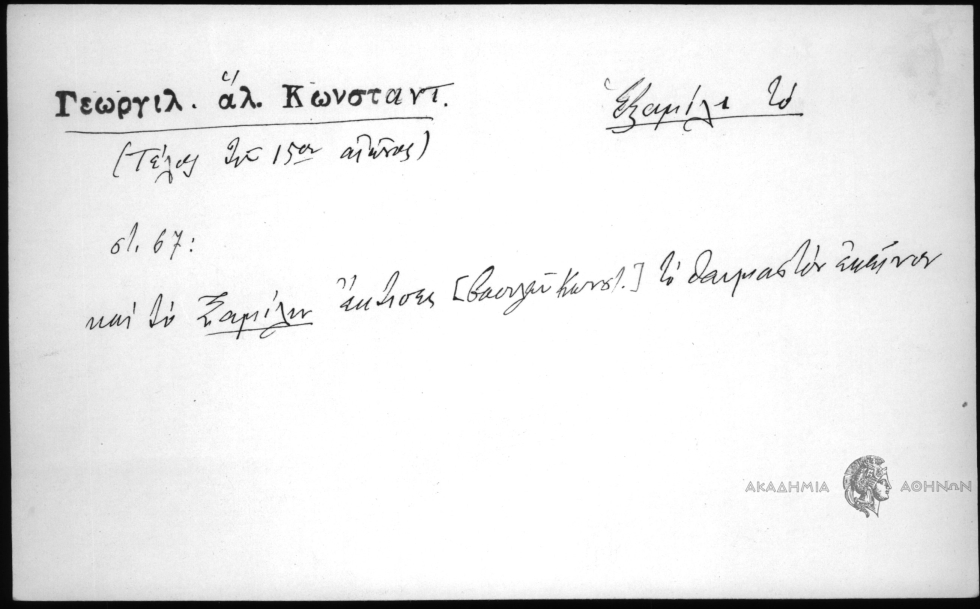 Γεωργιλ. ἅλ. Κωνσταντ. Ἑξαμίλι τό
(Τέλος τοῦ 15ου αἰῶνος)
στ. 67:
καὶ τὸ Ξαμίλιν ἔκτισες [βασιλεῦ Κωνστ.] τὸ θαυμαστὸν ἐκεῖνον
ΑΚΑΔΗΜΙΑ ΑΘΗΝΩΝ